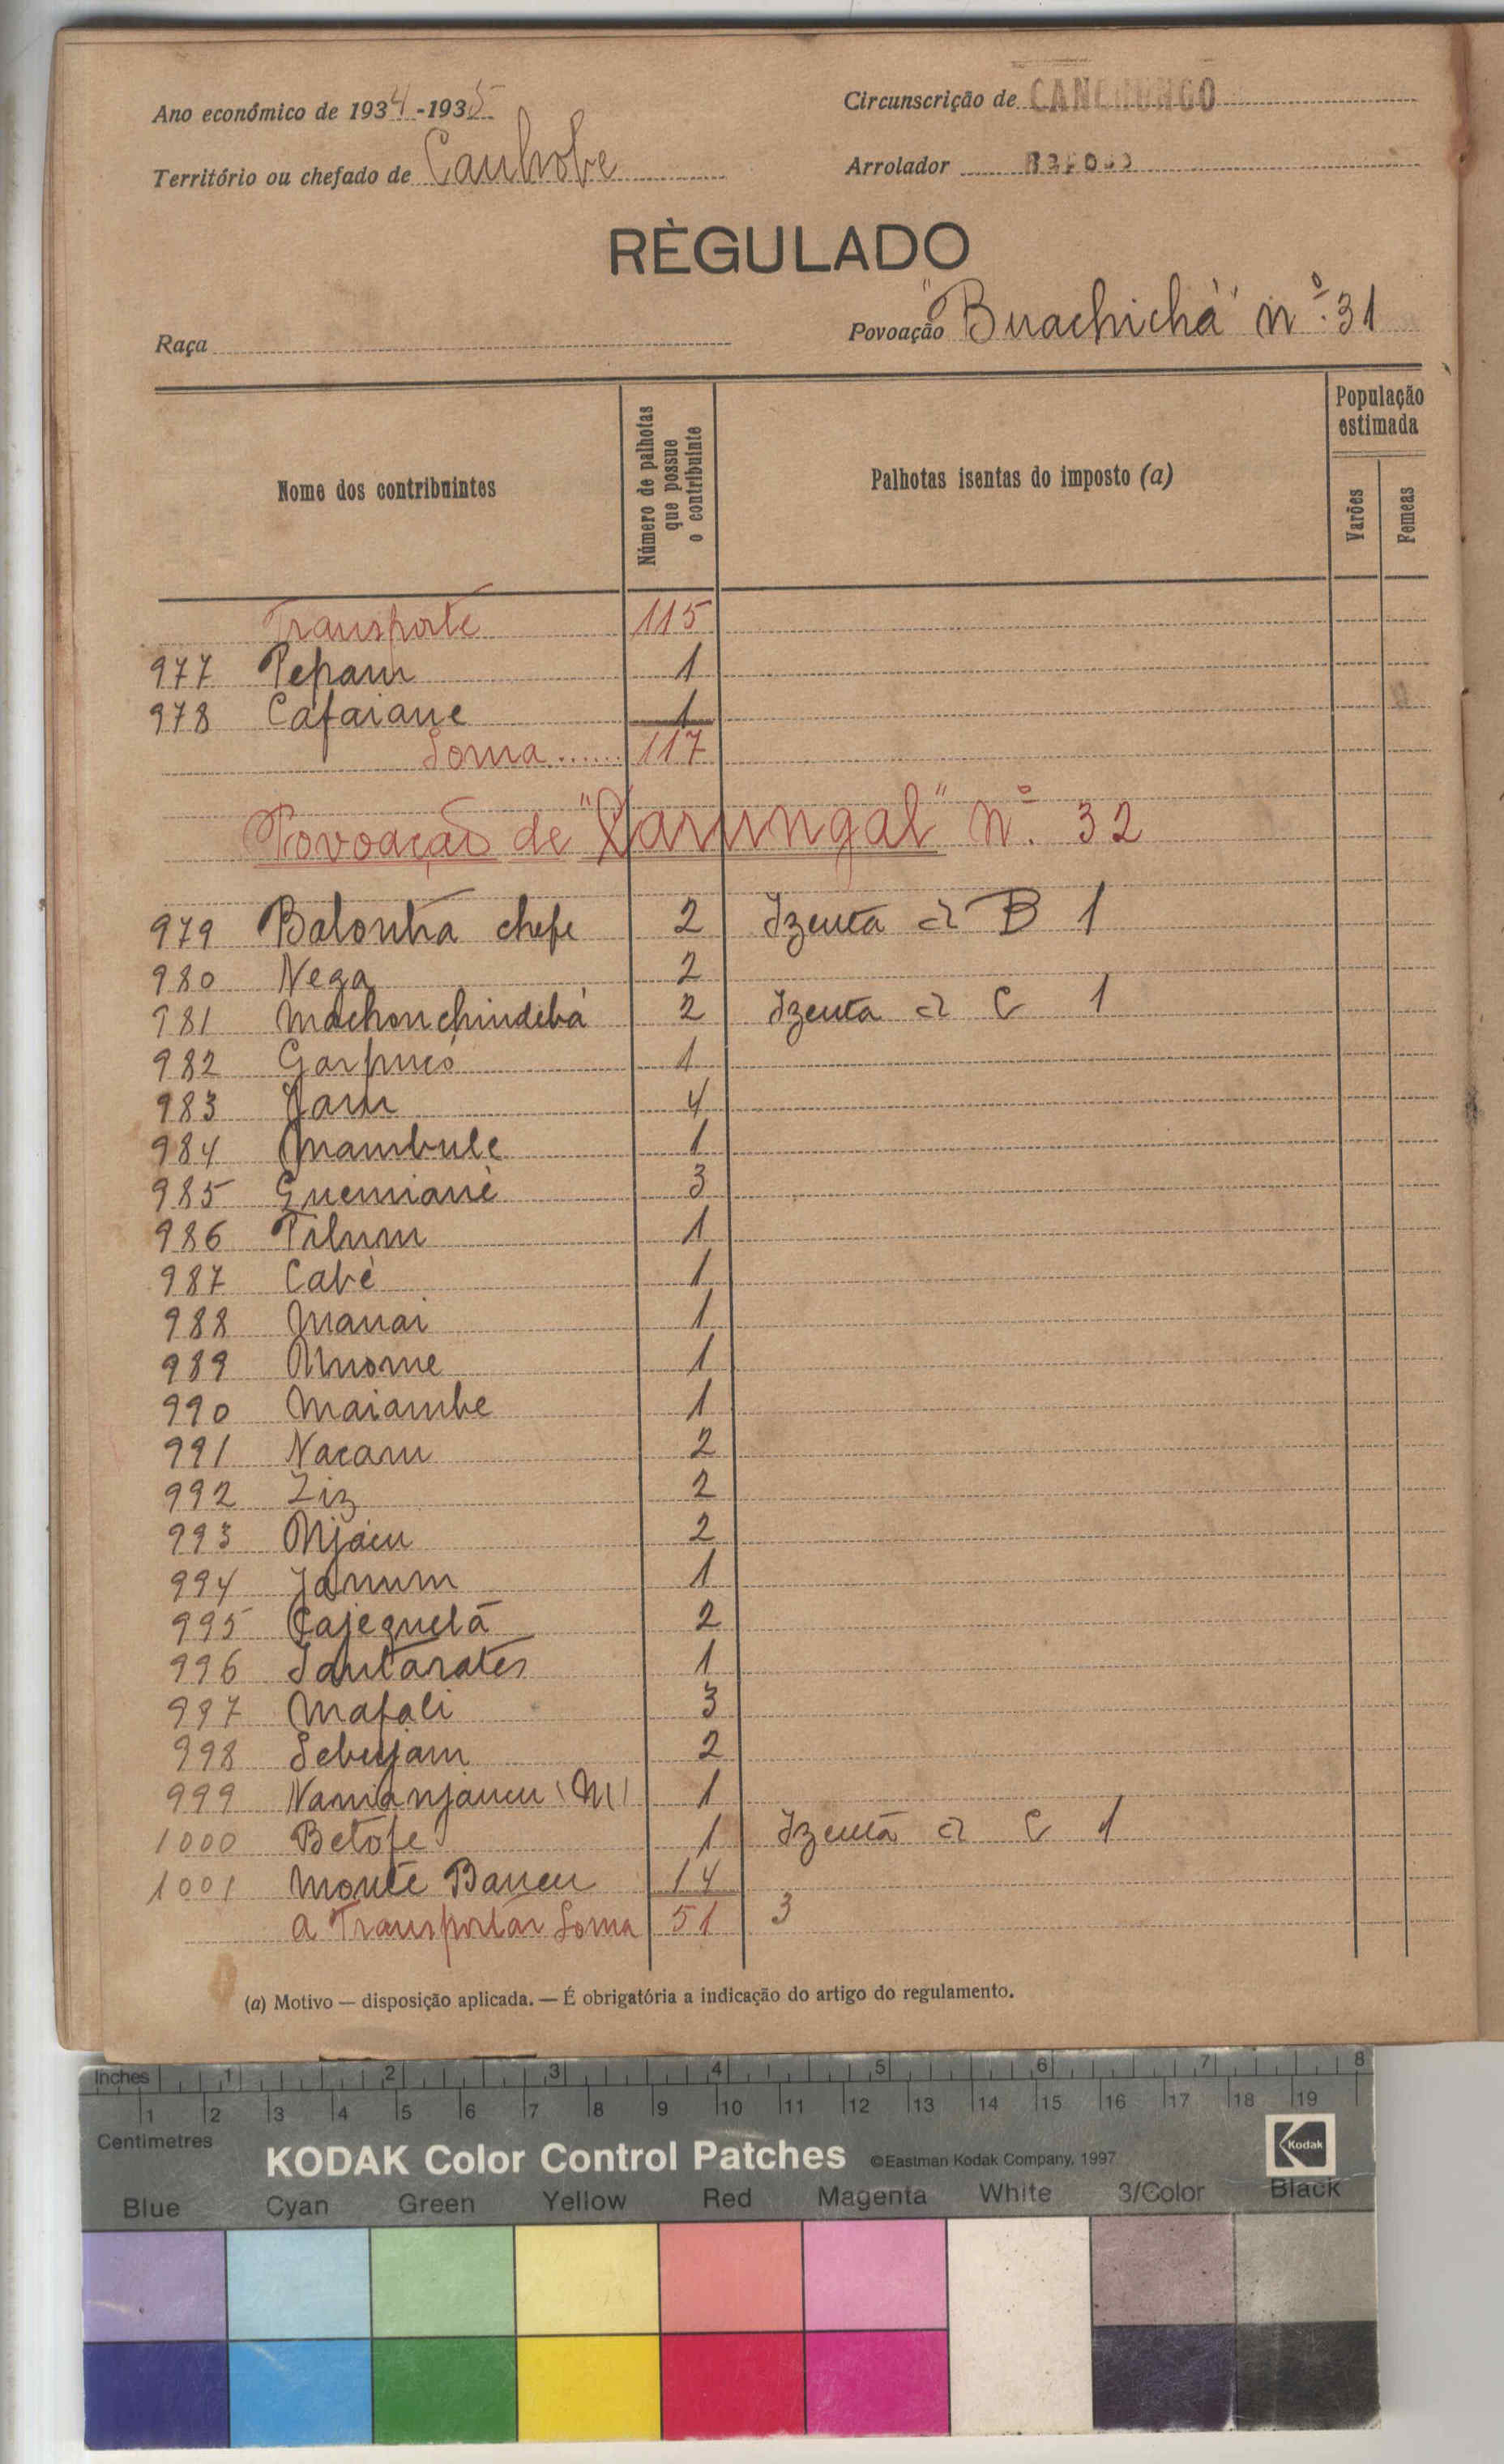 Ano económico de 1934-1935
Circunscrição de CANCHUNGO
Território ou chefado de Cauhobe
Arrolador
RÈGULADO
Raça
Povoação "Buachichà" nº. 31
Nome dos contribuintes
Número de palhotas que possue o contribuinte
Palhotas isentas do imposto (a)
População estimada
Varões
Femeas
Transporte 115
977 Pepam 1
978 Cafaiane 1
Soma...... 117
Povoação de nº. 32
979 Batonha chefe 2 Izenta a) B 1
980 Nega 2
981 Machonchindebá 2 Izenta a) C 1
982 Garpucó 1
983 Jam 4
984 Mambule 1
985 Guemianè 3
986 Pilum 1
987 Cabè 1
988 Manai 1
989 1
990 Maiambe 1
991 Nacam 2
992 Ziz 2
993 Njácu 2
994 Janum 1
995 Cajequelá 2
996 1
997 Mafali 3
998 2
999 (M) 1
1000 Betofe 1 Izenta a) C 1
1001 Monte Baneu 14
A Transportar Soma 51 3
(a) Motivo — disposição aplicada. — É obrigatória a indicação do artigo do regulamento.
Inches 1 2 3 4 5 6 7 8
1 2 3 4 5 6 7 8 9 10 11 12 13 14 15 16 17 18 19
Centimetres
KODAK Color Control Patches ©Eastman Kodak Company, 1997
Kodak
Blue Cyan Green Yellow Red Magenta White 3/Color Black